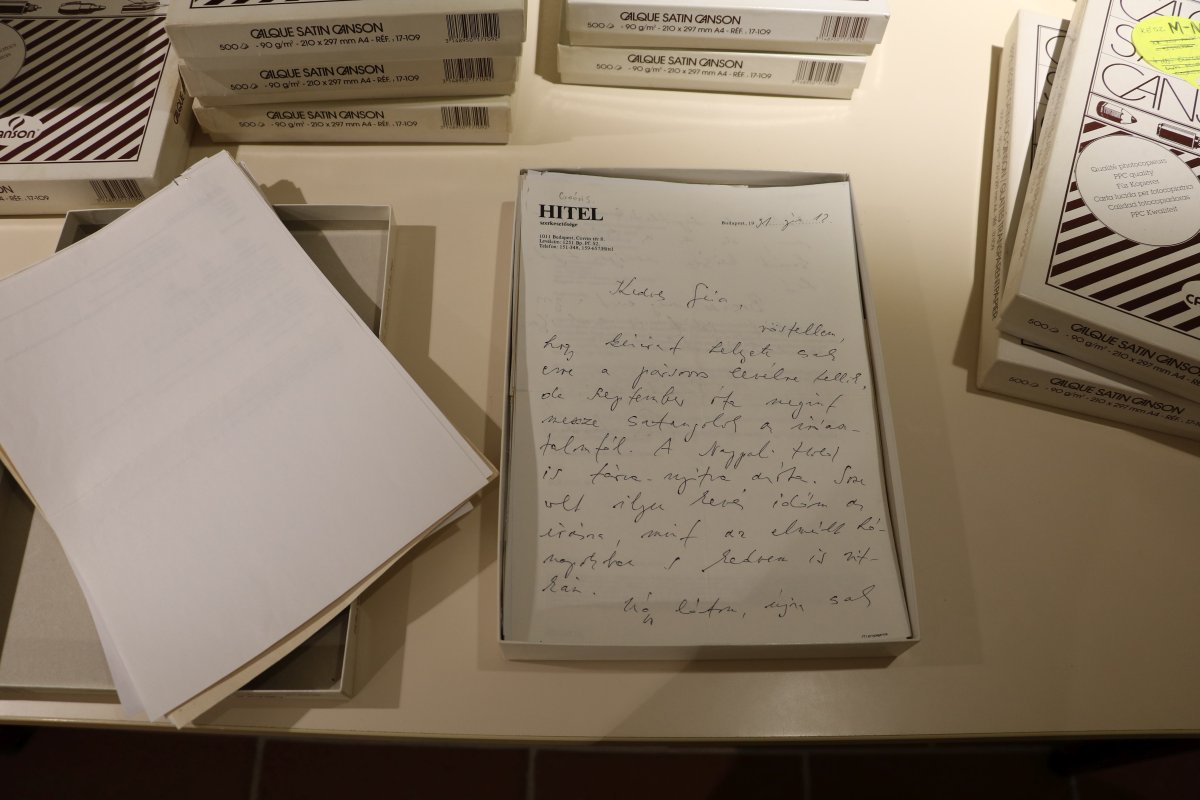 CALQUE SATIN CANSON
500 - 90 g/m² - 210 x 297 mm A4 - RÉF. 17-109
CALQUE SATIN CANSON
500 - 90 g/m² - 210 x 297 mm A4 - RÉF. 17-109
CALQUE SATIN CANSON
500 - 90 g/m² - 210 x 297 mm A4 - RÉF. 17-109
CALQUE SATIN CANSON
500 - 90 g/m² - 210 x 297 mm A4 - RÉF. 17-109
CALQUE SATIN CANSON
500 - 90 g/m² - 210 x 297 mm A4 - RÉF. 17-109
HITEL
szerkesztősége
1011 Budapest, Corvin tér 8.
Levélcím: 1251 Bp. Pf. 52.
Budapest, 19 91. 12
Kedves Géza,
röstellem,
hogy kézirat helyett csak
erre a pársoros levélre tellik,
de szeptember óta megint
messze satangolok az íróasz-
talomtól. A Nappali Hold
is tárva-nyitva azóta. Sose
volt ilyen kevés időm az
írásra, mint az elmúlt hó-
napokban s kedvem is rit-
kán.
Úgy látom, újra csak
Qualité photocopieurs
PPC quality
Für Kopierer
Carta lucida per fotocopiatrici
Calidad fotocopiadoras
PPC Kwaliteit
500 CALQUE SATIN CANSON
- 90 g/m² - 210 x 297 mm A4 - RÉF. 17-109
500 CALQUE SATIN CANSON
- 90 g/m² - 210 x 297 mm A4 - RÉF.